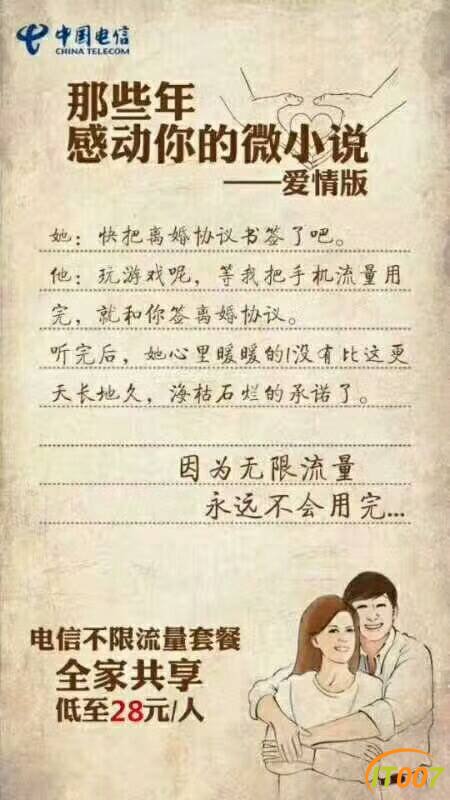 中国电信
CHINA TELECOM
那些年
感动你的微小说
——爱情版
她：快把离婚协议书签了吧。
他：玩游戏呢，等我把手机流量用
完，就和你签离婚协议。
听完后，她心里暖暖的!没有比这更
天长地久，海枯石烂的承诺了。
因为无限流量
永远不会用完...
电信不限流量套餐
全家共享
低至28元/人
IT007